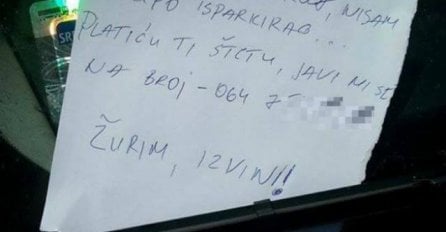 ISPARKIRAO...
PLATIĆU TI ŠTETU, JAVI MI SE
NA BROJ - 064 7
ŽURIM, IZVINI!